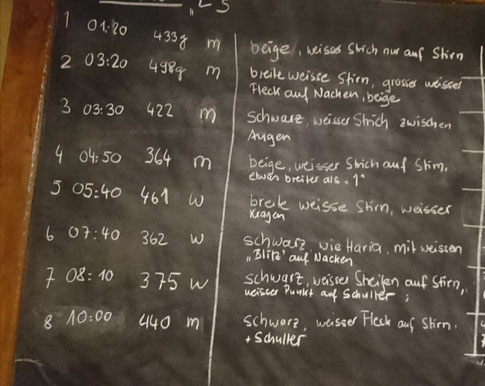 "ES
1 01:20 433g m beige, weisser Strich nur auf Stirn
2 03:20 498g m breite weisse Stirn, grosser weisser
Fleck auf Nacken, beige
3 03:30 422 m schwarz, weisser Strich zwischen
Augen
4 04:50 364 m beige, weisser Strich auf Stirn,
etwas breiter als "1"
5 05:40 461 w breite weisse Stirn, weisser
Kragen
6 07:40 362 w schwarz, wie Haria, mit weissen
"Blitz" auf Nacken
7 08:10 375 w schwarz, weisser Streifen auf Stirn,
weisser Punkt auf Schulter
8 10:00 440 m schwarz, weisser Fleck auf Stirn.
+ Schulter